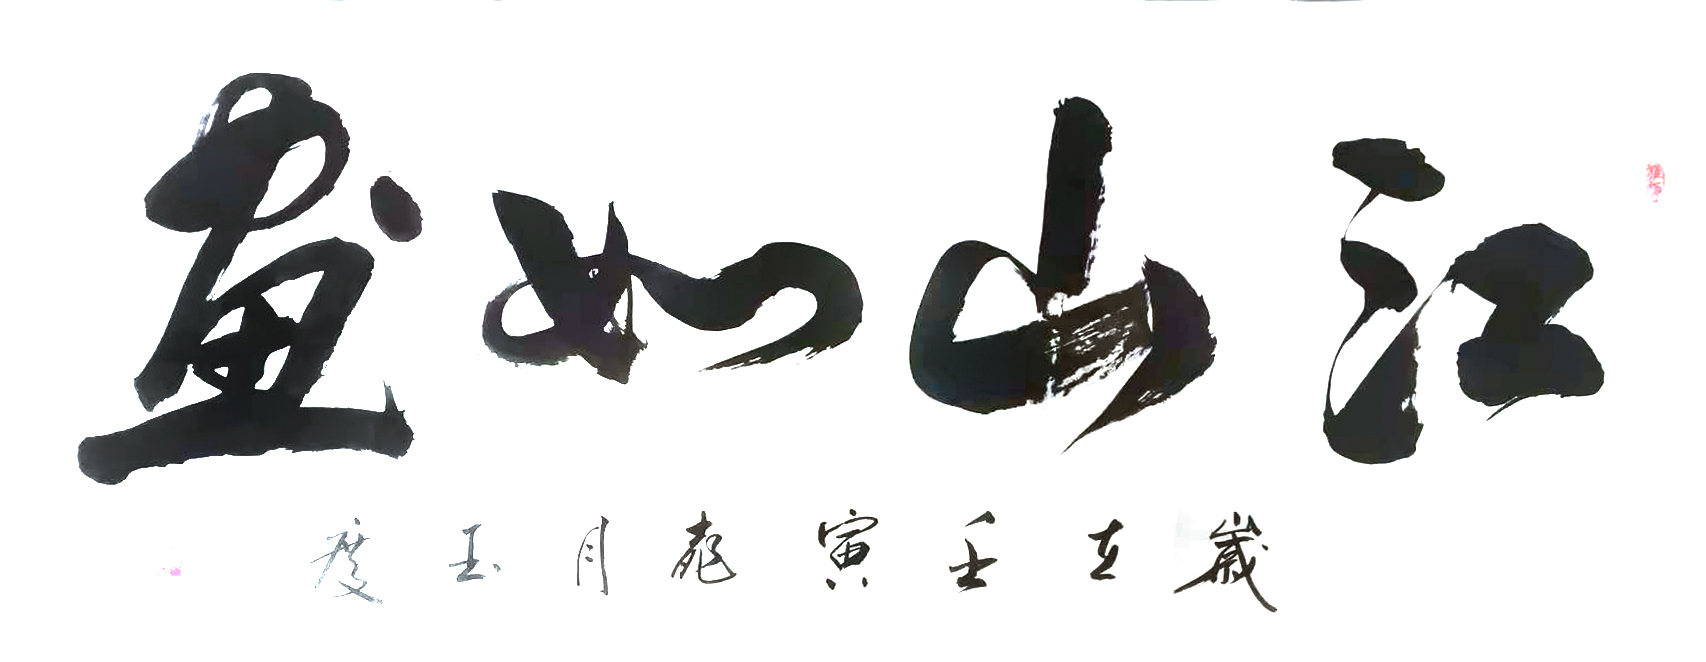 江山如畫
歲在壬寅月玉度